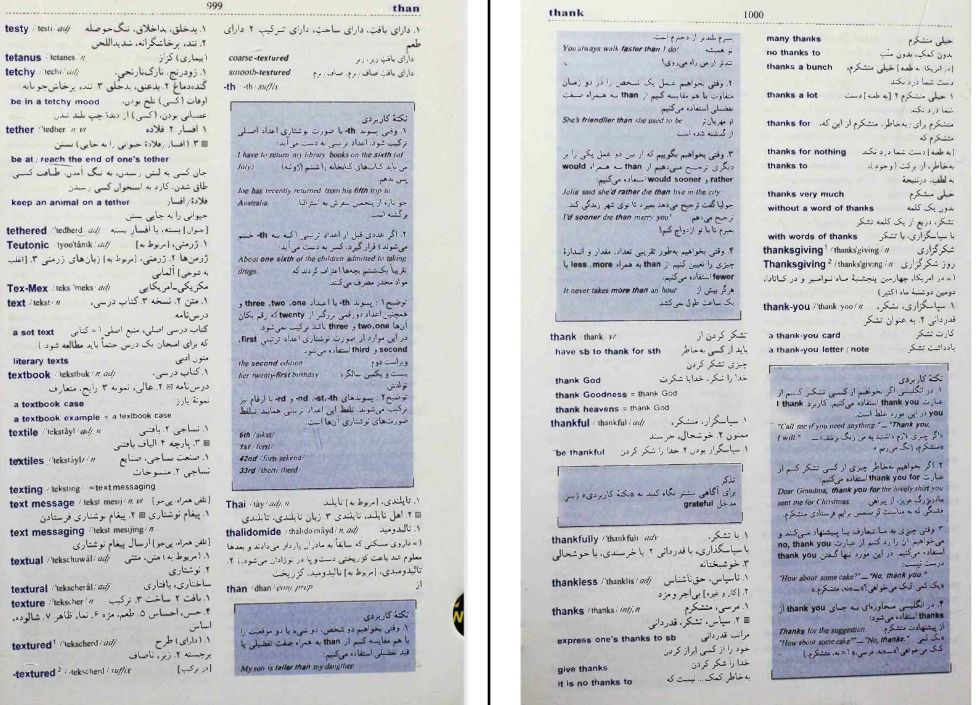 999
than
testy / testi / adj ۱. بدخلق، بداخلاق، تنگ‌حوصله
۲. تند، پرخاشگرانه، شدیداللحن
tetanus / tetanes / n (بیماری) کزاز
tetchy / techi / adj ۱. زودرنج، نازک‌نارنجی،
۲. بدعنق، بدخلق ۳. تند، پرخاش‌جویانه
be in a tetchy mood اوقات (کسی) تلخ بودن،
عصبانی بودن، (کسی) از دندۀ چپ بلند شدن
tether / tedher / n, vt ۱. افسار ۲. قلاده
۳. (افسار، قلادۀ حیوانی را به جایی) بستن
be at / reach the end of one's tether
جان کسی به لبش رسیدن، به تنگ آمدن، طاقت کسی
طاق شدن، کارد به استخوان کسی رسیدن
keep an animal on a tether قلادۀ/ افسار
حیوانی را به جایی بستن
tethered / tedherd / adj [حیوان] بسته، با افسار بسته
Teutonic / tyoo'tânik / adj ۱. ژرمنی، [مربوط به]
ژرمن‌ها ۲. ژرمنی، [مربوط به] زبان‌های ژرمنی ۳. [اغلب
به شوخی] آلمانی
Tex-Mex / teks 'meks / adj مکزیکی‌ـامریکایی
text / tekst / n ۱. متن ۲. نسخه ۳. کتاب درسی،
درس‌نامه
a set text کتاب درسی اصلی، منبع اصلی (= کتابی
که برای امتحان یک درس حتماً باید مطالعه شود)
literary texts متون ادبی
textbook / tekstbuk / n, adj ۱. کتاب درسی،
درس‌نامه ۲. عالی، نمونه ۳. رایج، متعارف
a textbook case نمونۀ بارز
a textbook example = a textbook case
textile / tekstâyl / adj, n ۱. نساجی ۲. بافتنی
۳. پارچه ۴. الیاف بافتنی
textiles / tekstâylz / n ۱. صنعت نساجی، صنایع
نساجی ۲. منسوجات
texting / teksting / = text messaging
text message / tekst mesij / n, vt [تلفن همراه، پی‌جو]
۱. پیغام نوشتاری ۲. پیغام نوشتاری فرستادن
text messaging / tekst mesijing / n
[تلفن همراه، پی‌جو] ارسال پیغام نوشتاری
textual / tekschuwâl / adj ۱. (مربوط به) متن، متنی
۲. نوشتاری
textural / tekscherâl / adj ساختاری، بافتاری
texture / tekscher / n ۱. بافت ۲. ساخت ۳. ترکیب
۴. حس، احساس ۵. طعم، مزه ۶. نما، ظاهر ۷. شالوده،
اساس
textured¹ / tekscherd / adj ۱. (دارای) طرح
برجسته ۲. زبر، ناصاف
-textured² / -tekscherd / suffix [در ترکیب]
۱. دارای بافت، دارای ساخت، دارای ترکیب ۲. دارای
طعم
coarse-textured دارای بافت زبر، زبر
smooth-textured دارای بافت صاف، نرم، صاف، نرم
-th / -th / suffix
نکتۀ کاربردی
۱. وقتی پسوند th- با صورت نوشتاری اعداد اصلی
ترکیب شود، اعداد ترتیبی به دست می‌آید:
I have to return my library books on the sixth (of
July) من باید کتاب‌های کتابخانه را ششم (ژوئیه)
پس بدهم
Joe has recently returned from his fifth trip to
Australia. جو تازه از پنجمین سفرش به استرالیا
برگشته است
۲. اگر عددی قبل از اعداد ترتیبی (که به th- ختم
می‌شوند) قرار گیرد، کسر به دست می‌آید:
About one sixth of the children admitted to taking
drugs. تقریباً یک‌ششم بچه‌ها اعتراف کردند که
مواد مخدر مصرف می‌کنند.
توضیح۱: پسوند th- با اعداد one، two، three و
همچنین اعداد دورقمی بزرگتر از twenty که رقم یکان
آن‌ها one، two و three باشد ترکیب نمی‌شود.
در این موارد از صورت نوشتاری اعداد ترتیبی first،
second و third استفاده می‌شود:
the second edition ویراست دوم
her twenty-first birthday بیست و یکمین سالگرد
تولدش
توضیح۲: پسوندهای th-، st-، nd- و rd- با ارقام نیز
ترکیب می‌شوند. تلفظ این اعداد ترتیبی همانند تلفظ
صورت‌های نوشتاری آن‌ها است:
6th /siksth/
1st /ferst/
42nd /forti sekend/
33rd /therti therd/
Thai / tây / adj, n ۱. تایلندی، [مربوط به] تایلند
۲. اهل تایلند، تایلندی ۳. زبان تایلندی، تایلندی
thalidomide / thalidomâyd / n, adj ۱. تالیدومید
(= داروی مسکنی که سابقاً به مادران باردار می‌دادند و بعدها
معلوم شد باعث کژریختی دست و پا در نوزادان می‌شود)، ۲.
تالیدومیدی، [مربوط به] تالیدومید، کژریخت
than / dhan / conj, prep از
نکتۀ کاربردی
۱. وقتی بخواهیم دو شخص، دو شیء یا دو موقعیت را
با هم مقایسه کنیم از than به همراه صفت تفضیلی یا
قید تفضیلی استفاده می‌کنیم:
My son is taller than my daugther.
thank
1000
پسرم بلندتر از دخترم است.
You always walk faster than I do! تو همیشه
تندتر از من راه می‌روی!
۲. وقتی بخواهیم عمل یک شخص را در دو زمان
متفاوت با هم مقایسه کنیم از than به همراه صفت
تفضیلی استفاده می‌کنیم:
She's friendlier than she used to be او مهربان‌تر
از گذشته شده است
۳. وقتی بخواهیم بگوییم که از بین دو عمل یکی را بر
دیگری ترجیح می‌دهیم از than به همراه would
rather و would sooner استفاده می‌کنیم:
Julia said she'd rather die than live in the city.
جولیا گفت ترجیح می‌دهد بمیرد تا توی شهر زندگی کند.
I'd sooner die than marry you! ترجیح می‌دهم
بمیرم تا با تو ازدواج کنم!
۴. وقتی بخواهیم به‌طور تقریبی تعداد، مقدار و اندازۀ
چیزی را تعیین کنیم از than به همراه more، less یا
fewer استفاده می‌کنیم:
It never takes more than an hour هرگز بیش از
یک ساعت طول نمی‌کشد.
thank / thank / vt تشکر کردن از
have sb to thank for sth باید از کسی به‌خاطر
چیزی تشکر کردن
thank God خدا را شکر، خدایا شکرت
thank Goodness = thank God
thank heavens = thank God
thankful / thankful / adj ۱. سپاسگزار، متشکر،
ممنون ۲. خوشحال، خرسند
be thankful ۱. سپاسگزار بودن ۲. خدا را شکر کردن
تذکر
برای آگاهی بیشتر نگاه کنید به «نکتۀ کاربردی» زیر
مدخل grateful
thankfully / thankfuli / adv ۱. با تشکر،
با سپاسگزاری، با قدردانی ۲. با خرسندی، با خوشحالی
۳. خوشبختانه
thankless / thanklis / adj ۱. ناسپاس، حق‌ناشناس
۲. [کار و غیره] بی‌اجر و مزد
thanks / thanks / intj, n ۱. مرسی، متشکرم
۲. سپاس، تشکر، قدردانی
express one's thanks to sb مراتب قدردانی
خود را از کسی ابراز کردن
give thanks خدا را شکر کردن
it is no thanks to به خاطر کمک... نیست که
many thanks خیلی متشکرم
no thanks to بدون کمک، بدون منّتِ
thanks a bunch [در امریکا، به طعنه] خیلی متشکرم،
دست شما درد نکند
thanks a lot ۱. خیلی متشکرم ۲. [به طعنه] دست
شما درد نکند
thanks for متشکرم برایِ، به‌خاطرِ، متشکرم از این که،
متشکرم که
thanks for nothing [به طعنه] دست شما درد نکند
thanks to به‌خاطرِ، از برکتِ (وجودِ)،
به لطفِ، درنتیجۀ
thanks very much خیلی متشکرم
without a word of thanks بدون یک کلمه
تشکر، دریغ از یک کلمه تشکر
with words of thanks با سپاسگزاری، با تشکر
thanksgiving¹ / thanks'giving / n شکرگزاری
Thanksgiving² / thanks'giving / n روز شکرگزاری
(= در امریکا، چهارمین پنجشنبۀ ماه نوامبر و در کانادا،
دومین دوشنبۀ ماه اکتبر)
thank-you / thank yoo / n ۱. سپاسگزاری، تشکر،
قدردانی ۲. به عنوان تشکر
a thank-you card کارت تشکر
a thank-you letter / note یادداشت تشکر
نکتۀ کاربردی
۱. در انگلیسی اگر بخواهیم از کسی تشکر کنیم از
عبارت thank you استفاده می‌کنیم. کاربرد I thank
you در این مورد غلط است.
"Call me if you need anything." _ "Thank you,
I will." «اگر چیزی لازم داشتید به من زنگ بزنید.» ـ
«متشکرم، زنگ می‌زنم.»
۲. اگر بخواهیم به‌خاطر چیزی از کسی تشکر کنیم از
عبارت thank you for استفاده می‌کنیم:
Dear Grandma, thank you for the lovely shirt you
sent me for Christmas. مادربزرگ عزیز، از پیراهن
قشنگی که به مناسبت کریسمس برایم فرستادی متشکرم.
۳. وقتی چیزی به ما تعارف یا پیشنهاد می‌کنند و
می‌خواهیم آن را رد کنیم از عبارت no, thank you
استفاده می‌کنیم. در این مورد تنها گفتن thank you
درست نیست:
"How about some cake?" _ "No, thank you."
«یک کمی کیک می‌خواهی؟» ـ «نه، متشکرم.»
۴. در انگلیسی محاوره‌ای به جای thank you از
thanks استفاده می‌شود:
Thanks for the suggestion. از پیشنهادت متشکرم.
"How about some cake?" _ "No, thanks." «یک کمی
کیک می‌خواهی؟» ـ «نه، مرسی.» (= نه، متشکرم.)